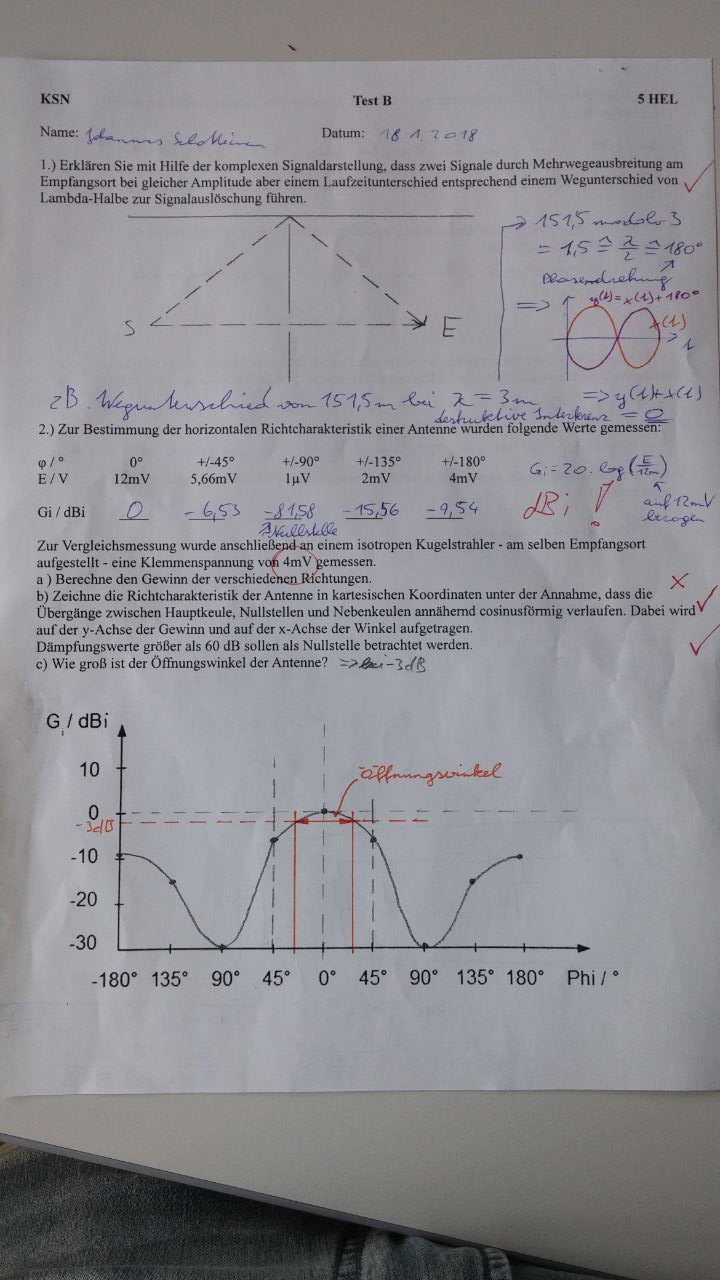 KSN Test B 5 HEL
Name: Datum: 18.1.2018
1.) Erklären Sie mit Hilfe der komplexen Signaldarstellung, dass zwei Signale durch Mehrwegeausbreitung am
Empfangsort bei gleicher Amplitude aber einem Laufzeitunterschied entsprechend einem Wegunterschied von
Lambda-Halbe zur Signalauslöschung führen.
→ 151,5 modulo 3
= 1,5 ≙ λ/2 ≙ 180°
Phasendrehung
⇒ y(t)=x(t)+180°
x(t)
t
S E
zB. Wegunterschied von 151,5m bei λ = 3m ⇒ y(t)+x(t)
destruktive Interferenz = 0
2.) Zur Bestimmung der horizontalen Richtcharakteristik einer Antenne wurden folgende Werte gemessen:
φ / ° 0° +/-45° +/-90° +/-135° +/-180°
E / V 12mV 5,66mV 1µV 2mV 4mV
Gi = 20 · log(E/12m)
Gi / dBi 0 -6,53 -81,58 -15,56 -9,54
dBi !
auf 12mV
bezogen
Nullstelle
Zur Vergleichsmessung wurde anschließend an einem isotropen Kugelstrahler - am selben Empfangsort
aufgestellt - eine Klemmenspannung von 4mV gemessen.
a ) Berechne den Gewinn der verschiedenen Richtungen.
b) Zeichne die Richtcharakteristik der Antenne in kartesischen Koordinaten unter der Annahme, dass die
Übergänge zwischen Hauptkeule, Nullstellen und Nebenkeulen annähernd cosinusförmig verlaufen. Dabei wird
auf der y-Achse der Gewinn und auf der x-Achse der Winkel aufgetragen.
Dämpfungswerte größer als 60 dB sollen als Nullstelle betrachtet werden.
c) Wie groß ist der Öffnungswinkel der Antenne? ⇒ bei -3dB
G i / dBi
Öffnungswinkel
10
0
-3dB
-10
-20
-30
-180° 135° 90° 45° 0° 45° 90° 135° 180° Phi / °